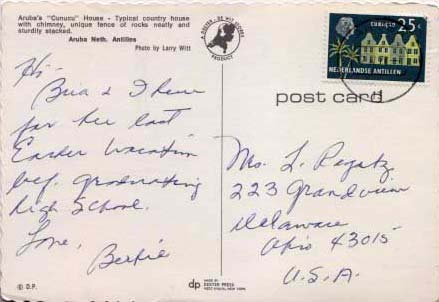 Aruba's "Cunucu" House - Typical country house
with chimney, unique fence of rocks neatly and
sturdily stacked.
Aruba Neth. Antilles
Photo by Larry Witt
A DEXTER - DE WIT COLOR
PRODUCT
CURAÇAO
25c
NEDERLANDSE ANTILLEN
post card
Hi -
Bea & I here
for her last
Easter Vacation
bef. graduating
high School.
Love,
Bertie
Ms. L. Regatz
223 Grandview
Delaware
Ohio 43015
U.S.A.
© D.P.
dp
MADE BY
DEXTER PRESS
WEST NYACK, NEW YORK